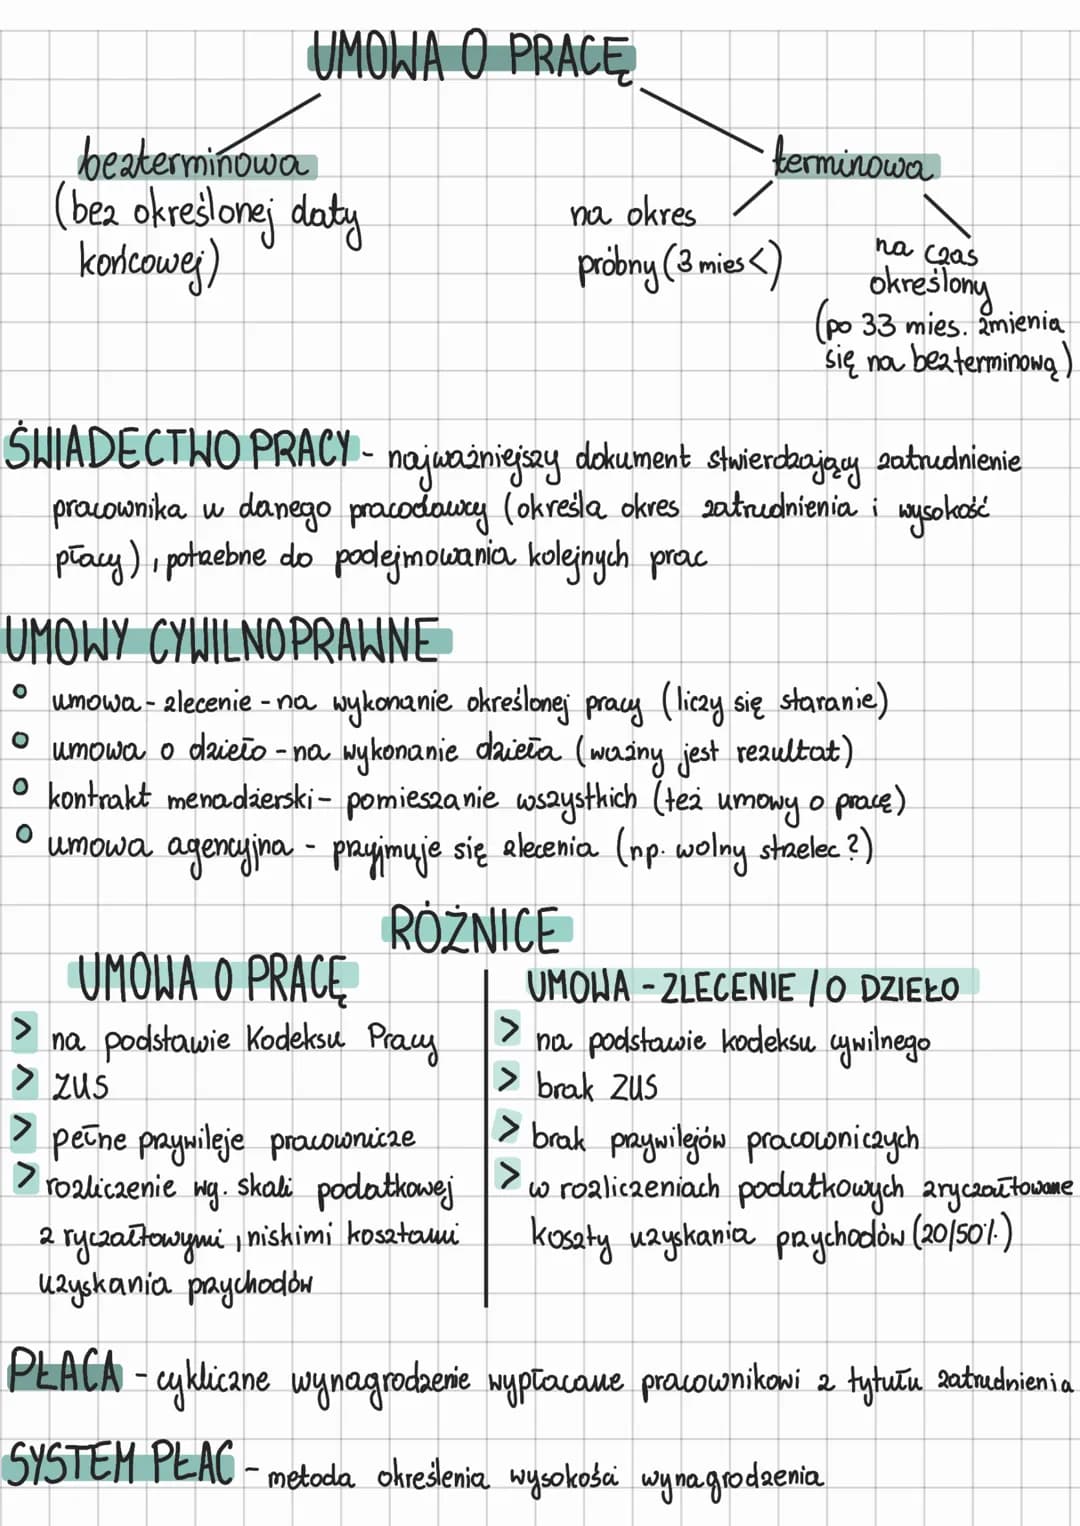 UMOWA O PRACĘ
bezterminowa
(bez określonej daty
końcowej)
terminowa
na okres
próbny (3 mies <)
na czas
określony
(po 33 mies. zmienia
się na bezterminową)
ŚWIADECTWO PRACY - najważniejszy dokument stwierdzający zatrudnienie
pracownika u danego pracodawcy (określa okres zatrudnienia i wysokość
płacy), potrzebne do podejmowania kolejnych prac
UMOWY CYWILNOPRAWNE
• umowa - zlecenie - na wykonanie określonej pracy (liczy się staranie)
• umowa o dzieło - na wykonanie dzieła (ważny jest rezultat)
• kontrakt menadżerski - pomieszanie wszystkich (też umowy o pracę)
• umowa agencyjna - przyjmuje się zlecenia (np. wolny strzelec?)
RÓŻNICE
UMOWA O PRACĘ
> na podstawie Kodeksu Pracy
> ZUS
> pełne przywileje pracownicze
> rozliczenie wg. skali podatkowej
z ryczałtowymi, niskimi kosztami
uzyskania przychodów
UMOWA - ZLECENIE / O DZIEŁO
> na podstawie kodeksu cywilnego
> brak ZUS
> brak przywilejów pracowniczych
> w rozliczeniach podatkowych zryczałtowane
koszty uzyskania przychodów (20/50%)
PŁACA - cykliczne wynagrodzenie wypłacane pracownikowi z tytułu zatrudnienia
SYSTEM PŁAC - metoda określenia wysokości wynagrodzenia